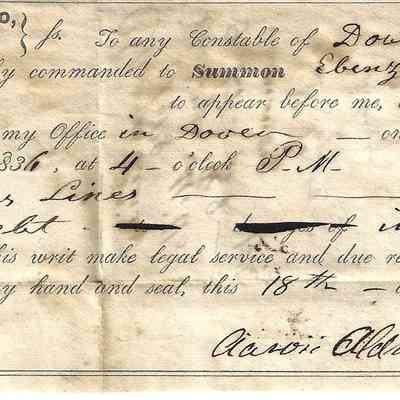 o, } ss. To any Constable of Dov
y commanded to Summon Ebenz
to appear before me,
my Office in Dover — on
836, at 4 - o'clock P. M.
s Lines
ebt. of i
his writ make legal service and due re
y hand and seal, this 18th —
Aaron Ald